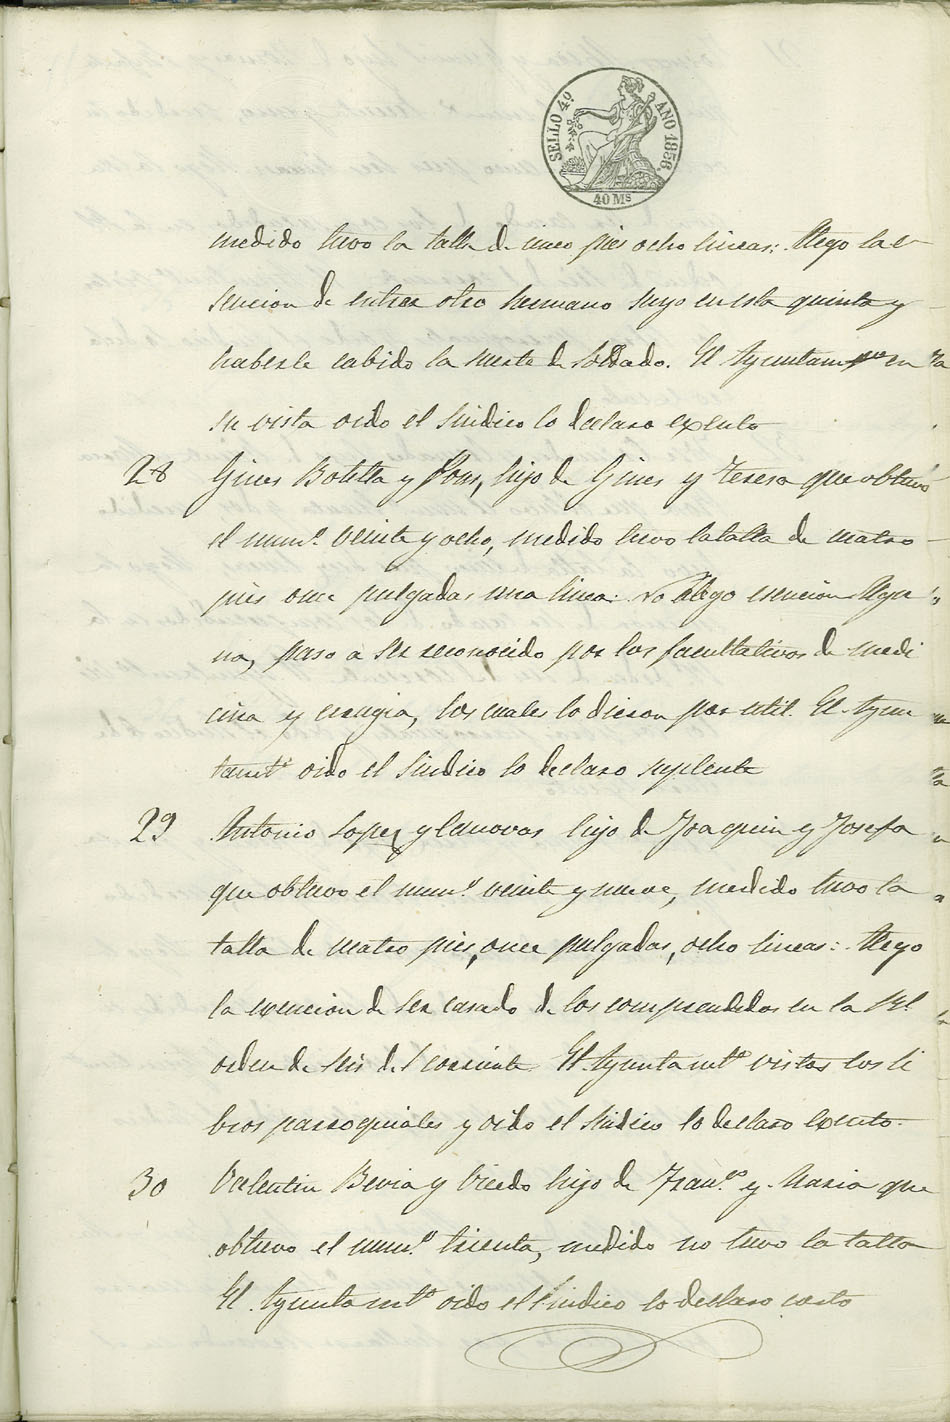 SELLO 4º AÑO 1856.
40 Ms
medido tuvo la talla de cinco pies ocho lineas: Alego la e-
sencion de entrar otro hermano suyo en esta quinta y
haberle cabido la suerte de soldado. El Ayuntam.to en
su vista oido el Sindico lo declaro exento
28 Gines Botella y Pons, hijo de Gines y Teresa que obtuvo
el num.º veinte y ocho, medido tuvo la talla de cuatro
pies once pulgadas una linea: no Alego esencion Algu-
na, paso a ser reconocido por los facultativos de medi
cina y cirugia, los cuales lo dieron por util. El Ayun
tamt.º oido el Sindico lo declaro suplente
29 Antonio Lopez y Canovas hijo de Joaquin y Josefa
que obtuvo el num.º veinte y nueve, medido tuvo la
talla de cuatro pies, once pulgadas, ocho lineas: Alego
la exencion de ser casado de los comprendidos en la Rl.
orden de seis del corriente. El Ayuntamt.º vistos los li
bros parroquiales y oido el Sindico lo declaro exento.
30 Valentin Bevia y Vicedo hijo de Fran.co y Maria que
obtuvo el num.º treinta, medido no tuvo la talla
El Ayuntamt.º oido el Sindico lo declaro corto